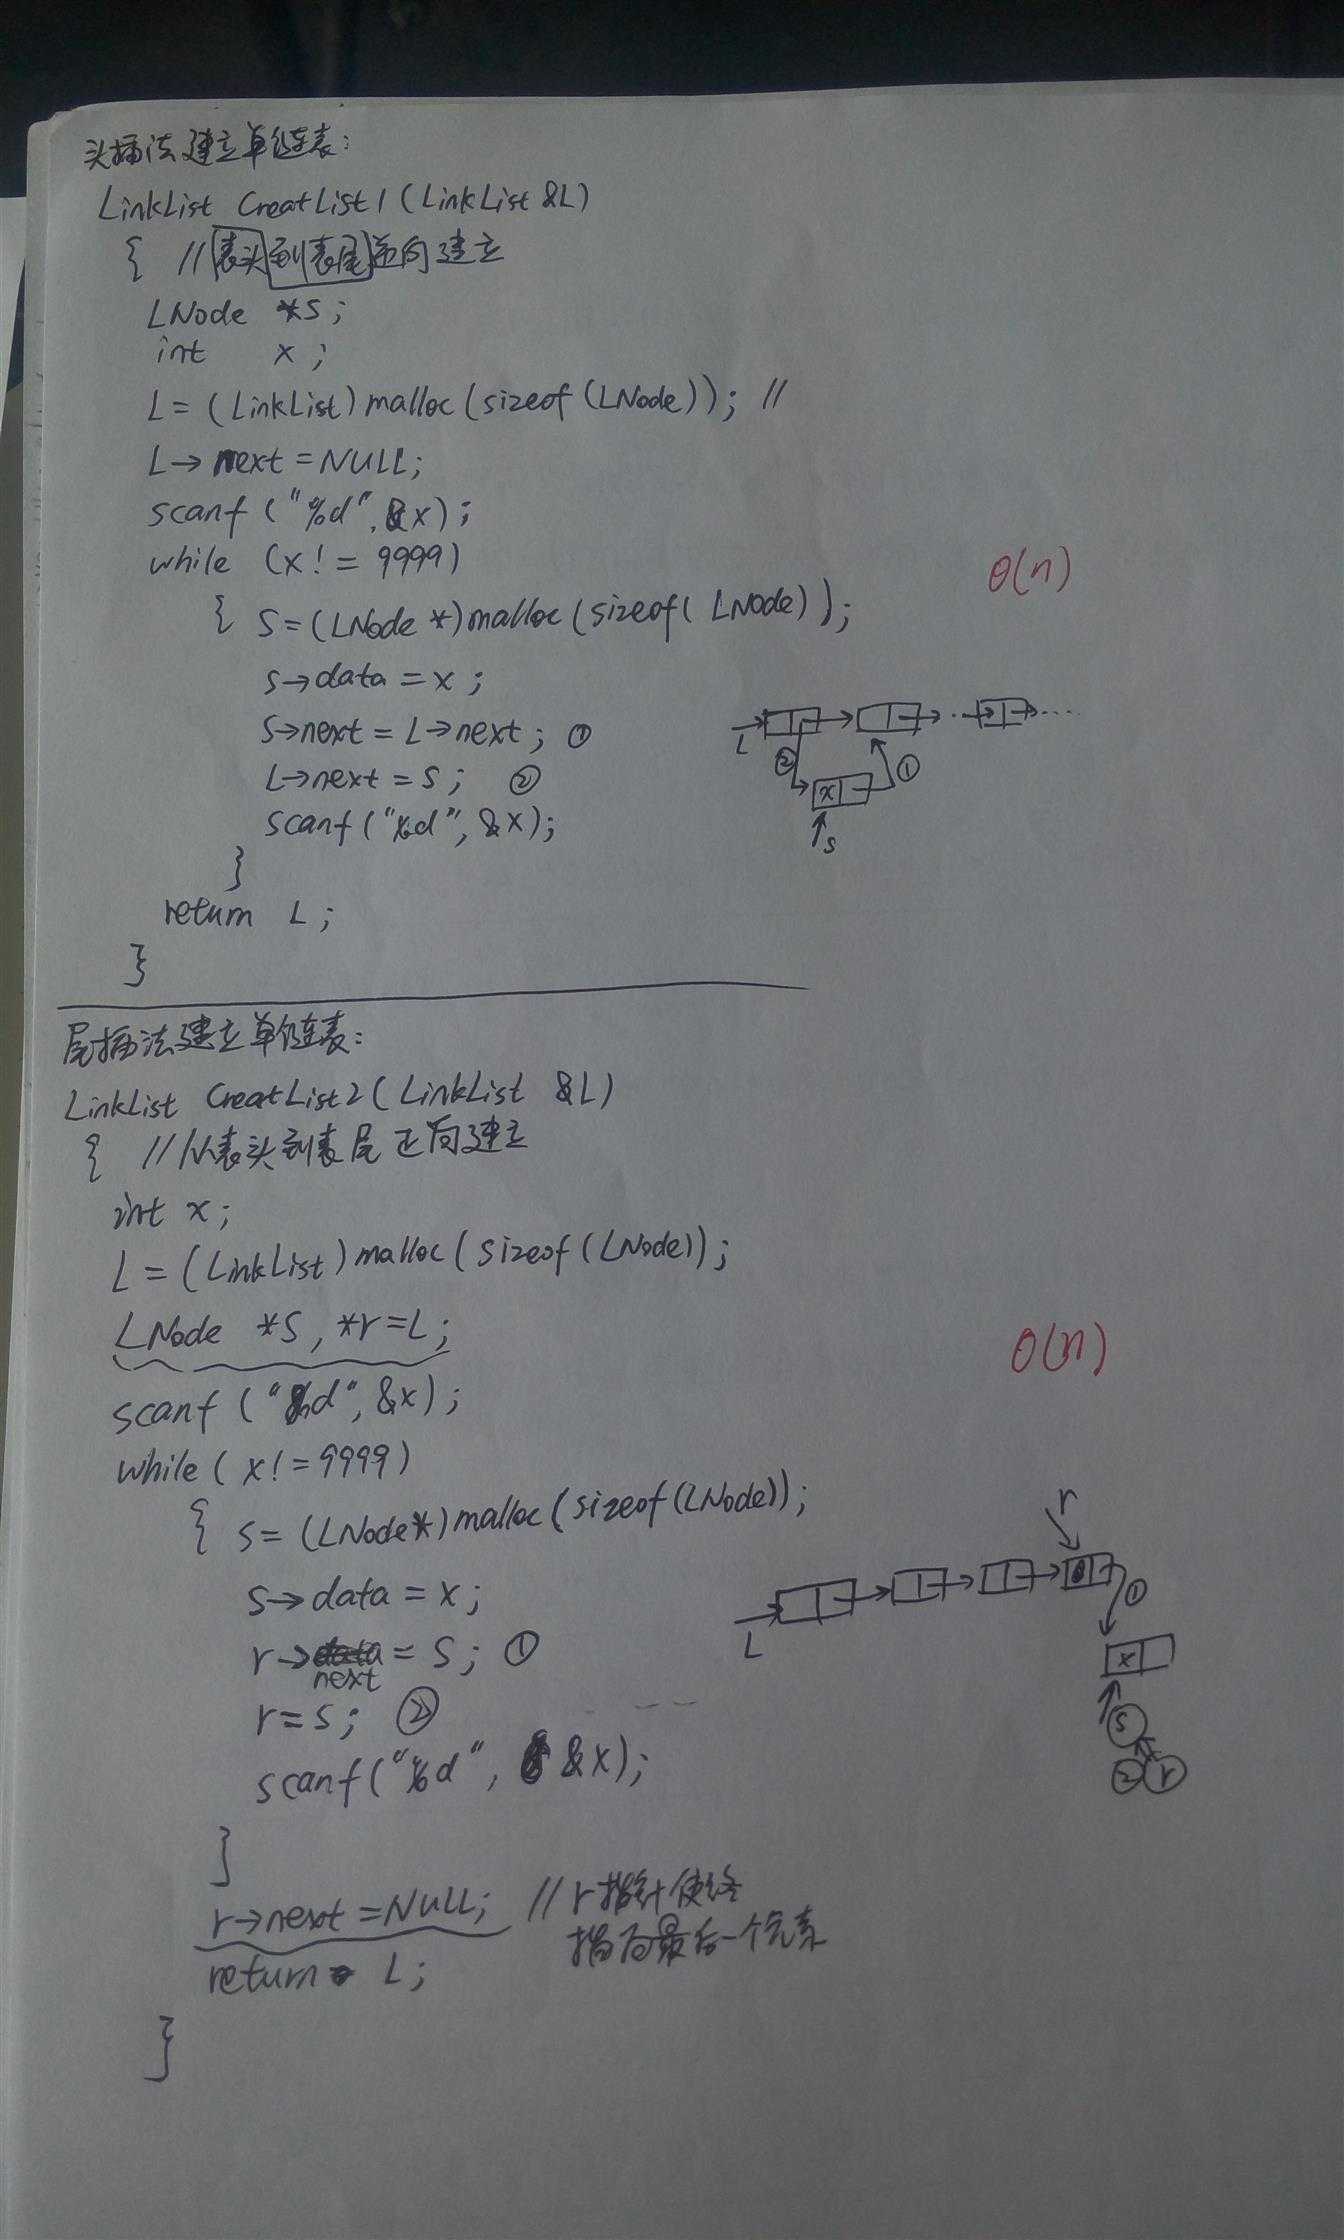 头插法建立单链表:
LinkList CreatList1 (LinkList &L)
{ //表头到表尾逆向建立
LNode *s;
int x;
L = (LinkList) malloc (sizeof (LNode)); //
L→next = NULL;
scanf ("%d", &x);
while (x! = 9999)
θ(n)
{ s = (LNode *) malloc (sizeof( LNode) );
s→data = x;
s→next = L→next; ①
L→next = s; ②
scanf ("%d", &x);
}
return L;
}
L
② ①
x
s
尾插法建立单链表:
LinkList CreatList2 ( LinkList &L)
{ //从表头到表尾正向建立
int x;
L = (LinkList) malloc (sizeof (LNode));
LNode *s, *r=L;
θ(n)
scanf ("%d", &x);
while ( x! = 9999)
{ s = (LNode*) malloc (sizeof (LNode));
s→data = x;
r→next = s; ①
r=s; ②
scanf("%d", &x);
}
r→next = NULL; //r指针使终
指向最后一个元素
return L;
}
r
①
L
x
s
② r